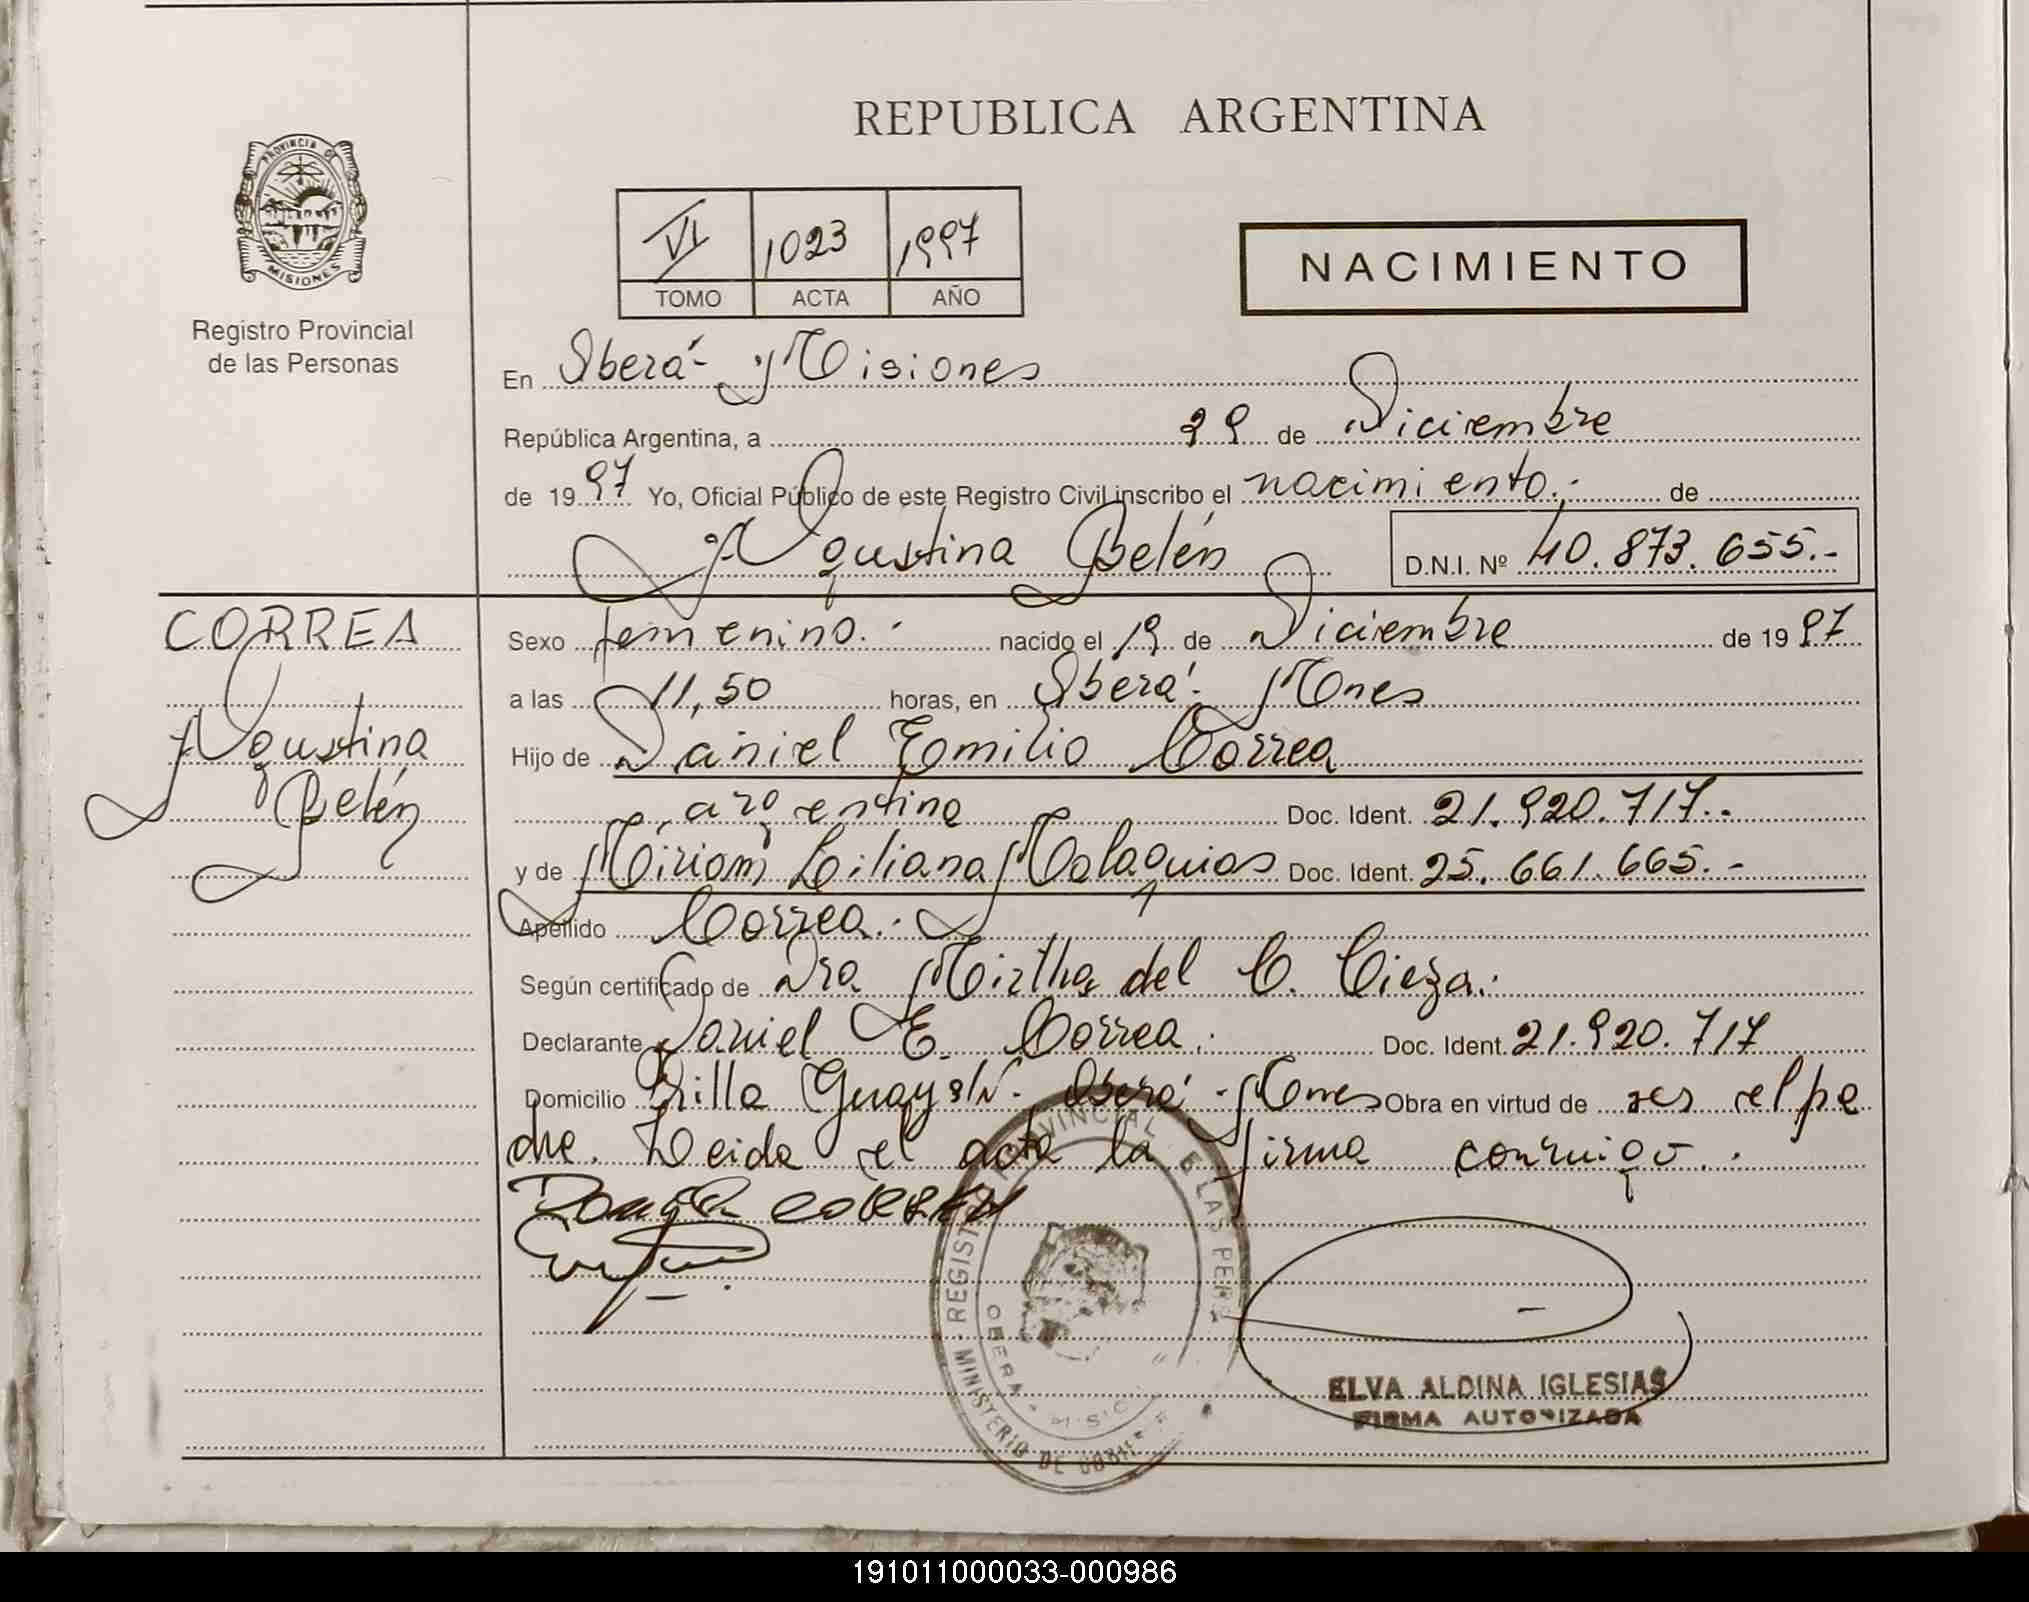 REPUBLICA ARGENTINA
PROVINCIA DE
MISIONES
Registro Provincial
de las Personas
VI 1023 1997
TOMO ACTA AÑO
NACIMIENTO
En Oberá - Misiones
República Argentina, a 29 de Diciembre
de 1997 Yo, Oficial Público de este Registro Civil inscribo el nacimiento.- de
Agustina Belén D.N.I. Nº 40.873.655.-
CORREA
Agustina
Belén
Sexo femenino.- nacido el 19 de Diciembre de 1997
a las 11,50 horas, en Oberá - Mnes
Hijo de Daniel Emilio Correa
argentina Doc. Ident. 21.920.717.-
y de Miriam Liliana Malaquias Doc. Ident. 25.661.665.-
Apellido Correa.-
Según certificado de Dra Mirtha del C. Cieza.-
Declarante Daniel E. Correa.- Doc. Ident. 21.920.717
Domicilio Villa Guay s/N - Oberá - Mnes Obra en virtud de ser el pa
dre. Leida el acta la firma conmigo.-
CORREA
REGISTRO PROVINCIAL DE LAS PERS
OBERA - MISIO
MINISTERIO DE GOBIER
ELVA ALDINA IGLESIAS
FIRMA AUTORIZADA
191011000033-000986